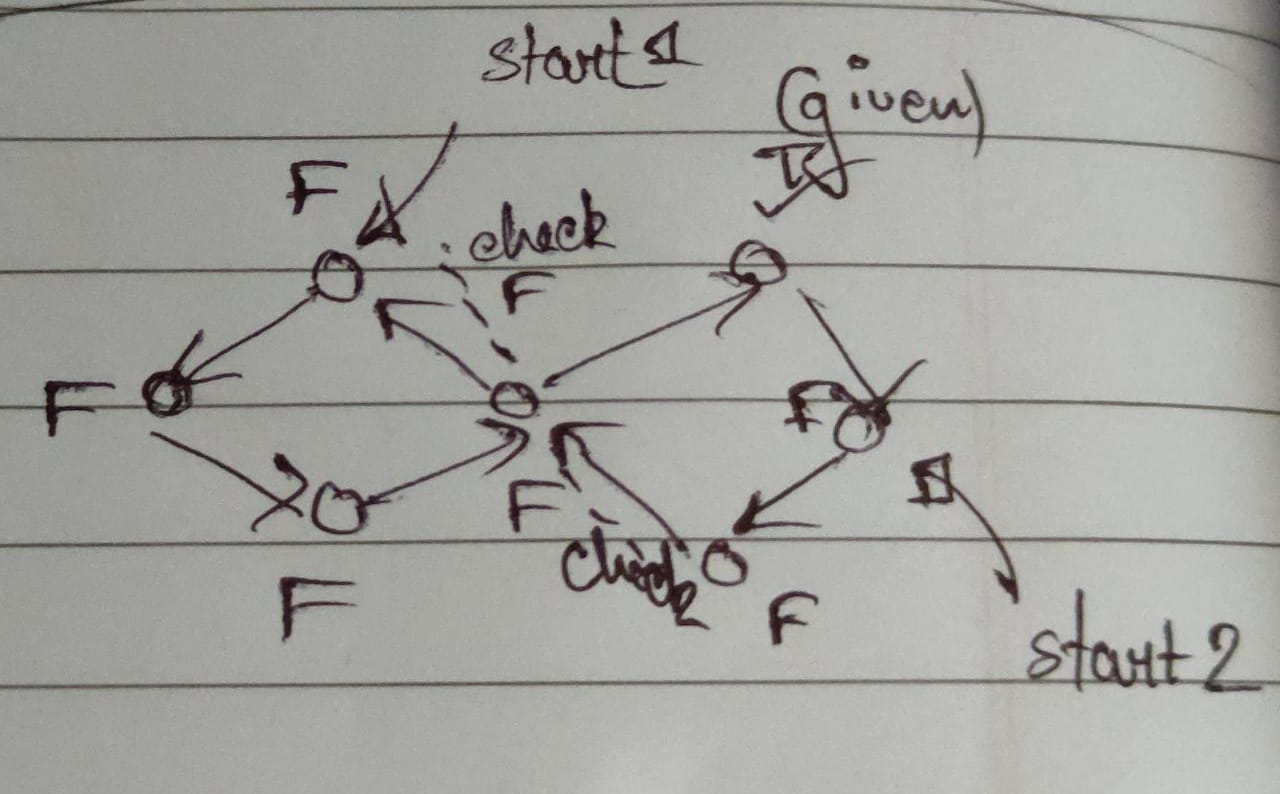 start 1
(given)
F
check
F
F
F
F
check
F
F
start 2